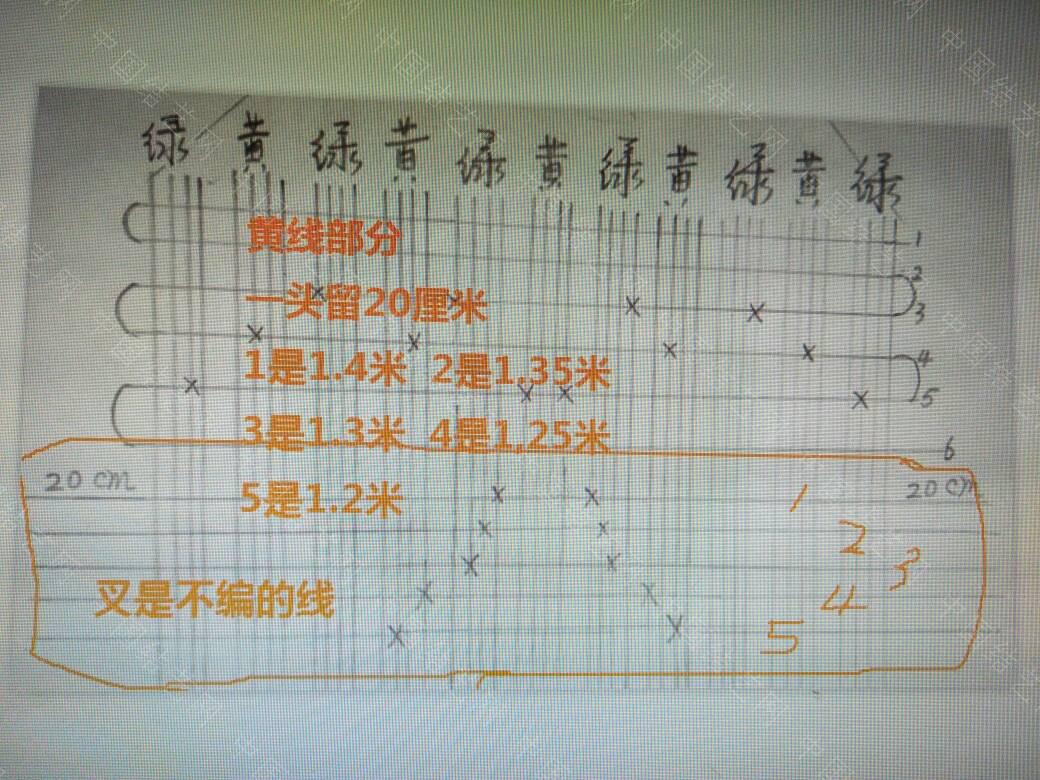 绿 黄 绿 黄 绿 黄 绿 黄 绿 黄 绿
黄线部分
1
2
一头留20厘米
3
1是1.4米 2是1,35米
4
5
3是1.3米 4是1,25米
6
20 cm
20 cm
5是1.2米
1
2
3
叉是不编的线
4
5
中国结艺网